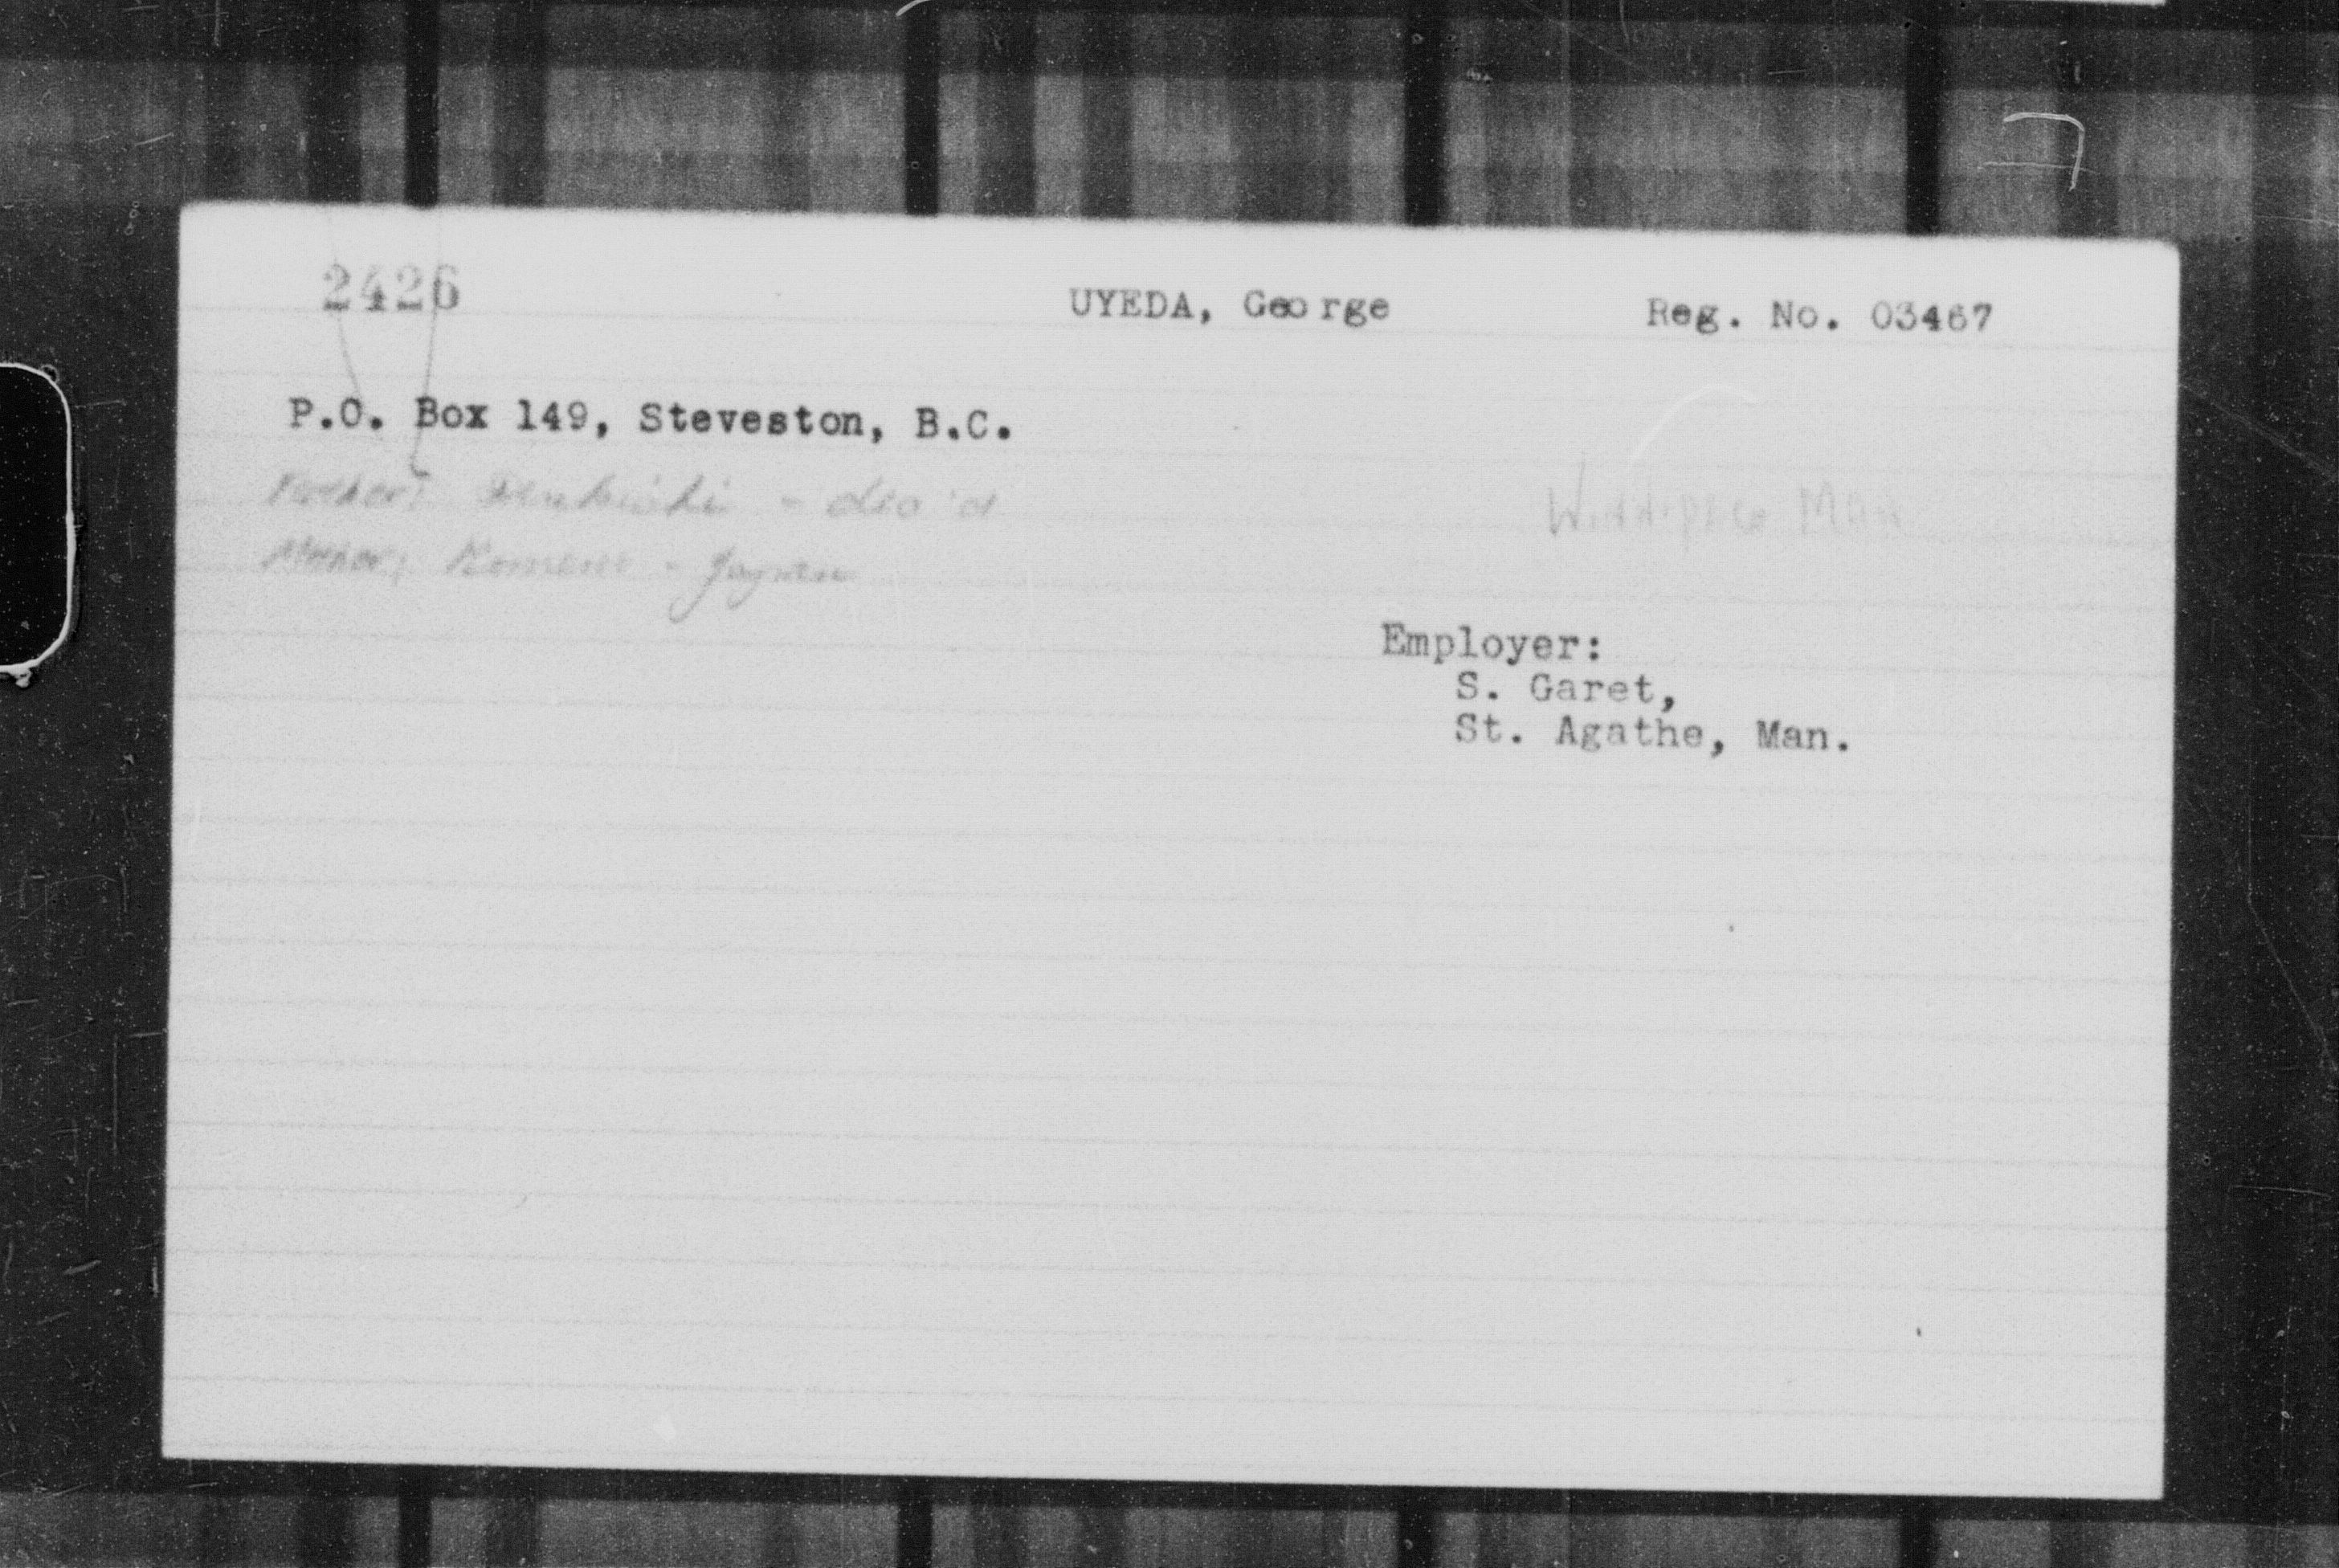 2426
UYEDA, George
Reg. No. 03467
P.O. Box 149, Steveston, B.C.
Father: - dec'd
Winnipeg Man
Mother: - Japan
Employer:
S. Garet,
St. Agathe, Man.